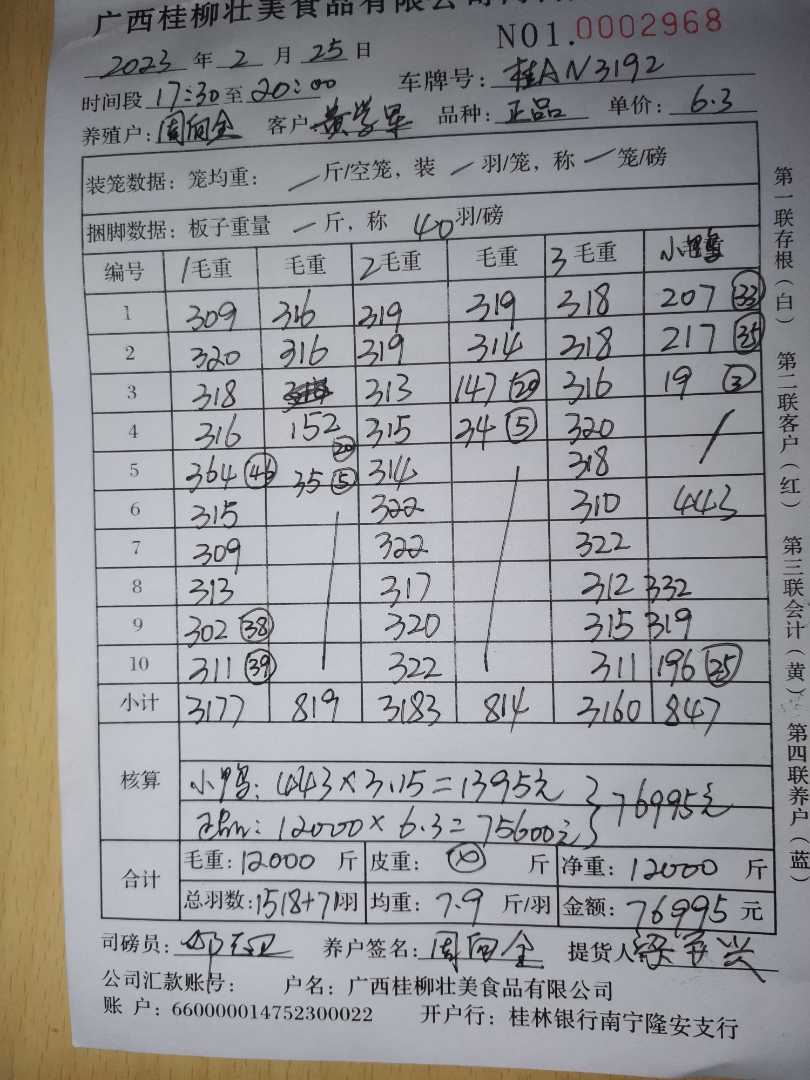 广西桂柳壮美食品有限公司
NO1.0002968
2023 年 2 月 25 日
时间段 17:30 至 20:00 车牌号: 桂AN3192
养殖户: 周向全 客户: 黄学军 品种: 正品 单价: 6.3
装笼数据: 笼均重: / 斤/空笼, 装 / 羽/笼, 称 / 笼/磅
捆脚数据: 板子重量 / 斤, 称 40 羽/磅
编号 1毛重 毛重 2毛重 毛重 3毛重 小鸭
1 309 316 319 319 318 207 33
2 320 316 319 314 318 217 35
3 318 313 147 20 316 19 3
4 316 152 20 315 34 5 320 /
5 364 46 35 5 314 318
6 315 322 310 443
7 309 322 322
8 313 317 312 332
9 302 38 320 315 319
10 311 39 322 311 196 25
小计 3177 819 3183 814 3160 847
核算
小鸭: 443×3.15=1395元 } 76995元
正品: 12000×6.3=75600元
合计 毛重: 12000 斤 皮重: 斤 净重: 12000 斤
总羽数: 1518+71羽 均重: 7.9 斤/羽 金额: 76995 元
司磅员: 养户签名: 周向全 提货人
公司汇款账号: 户名: 广西桂柳壮美食品有限公司
账 户: 660000014752300022 开户行: 桂林银行南宁隆安支行
第一联存根(白) 第二联客户(红) 第三联会计(黄) 第四联养户(蓝)